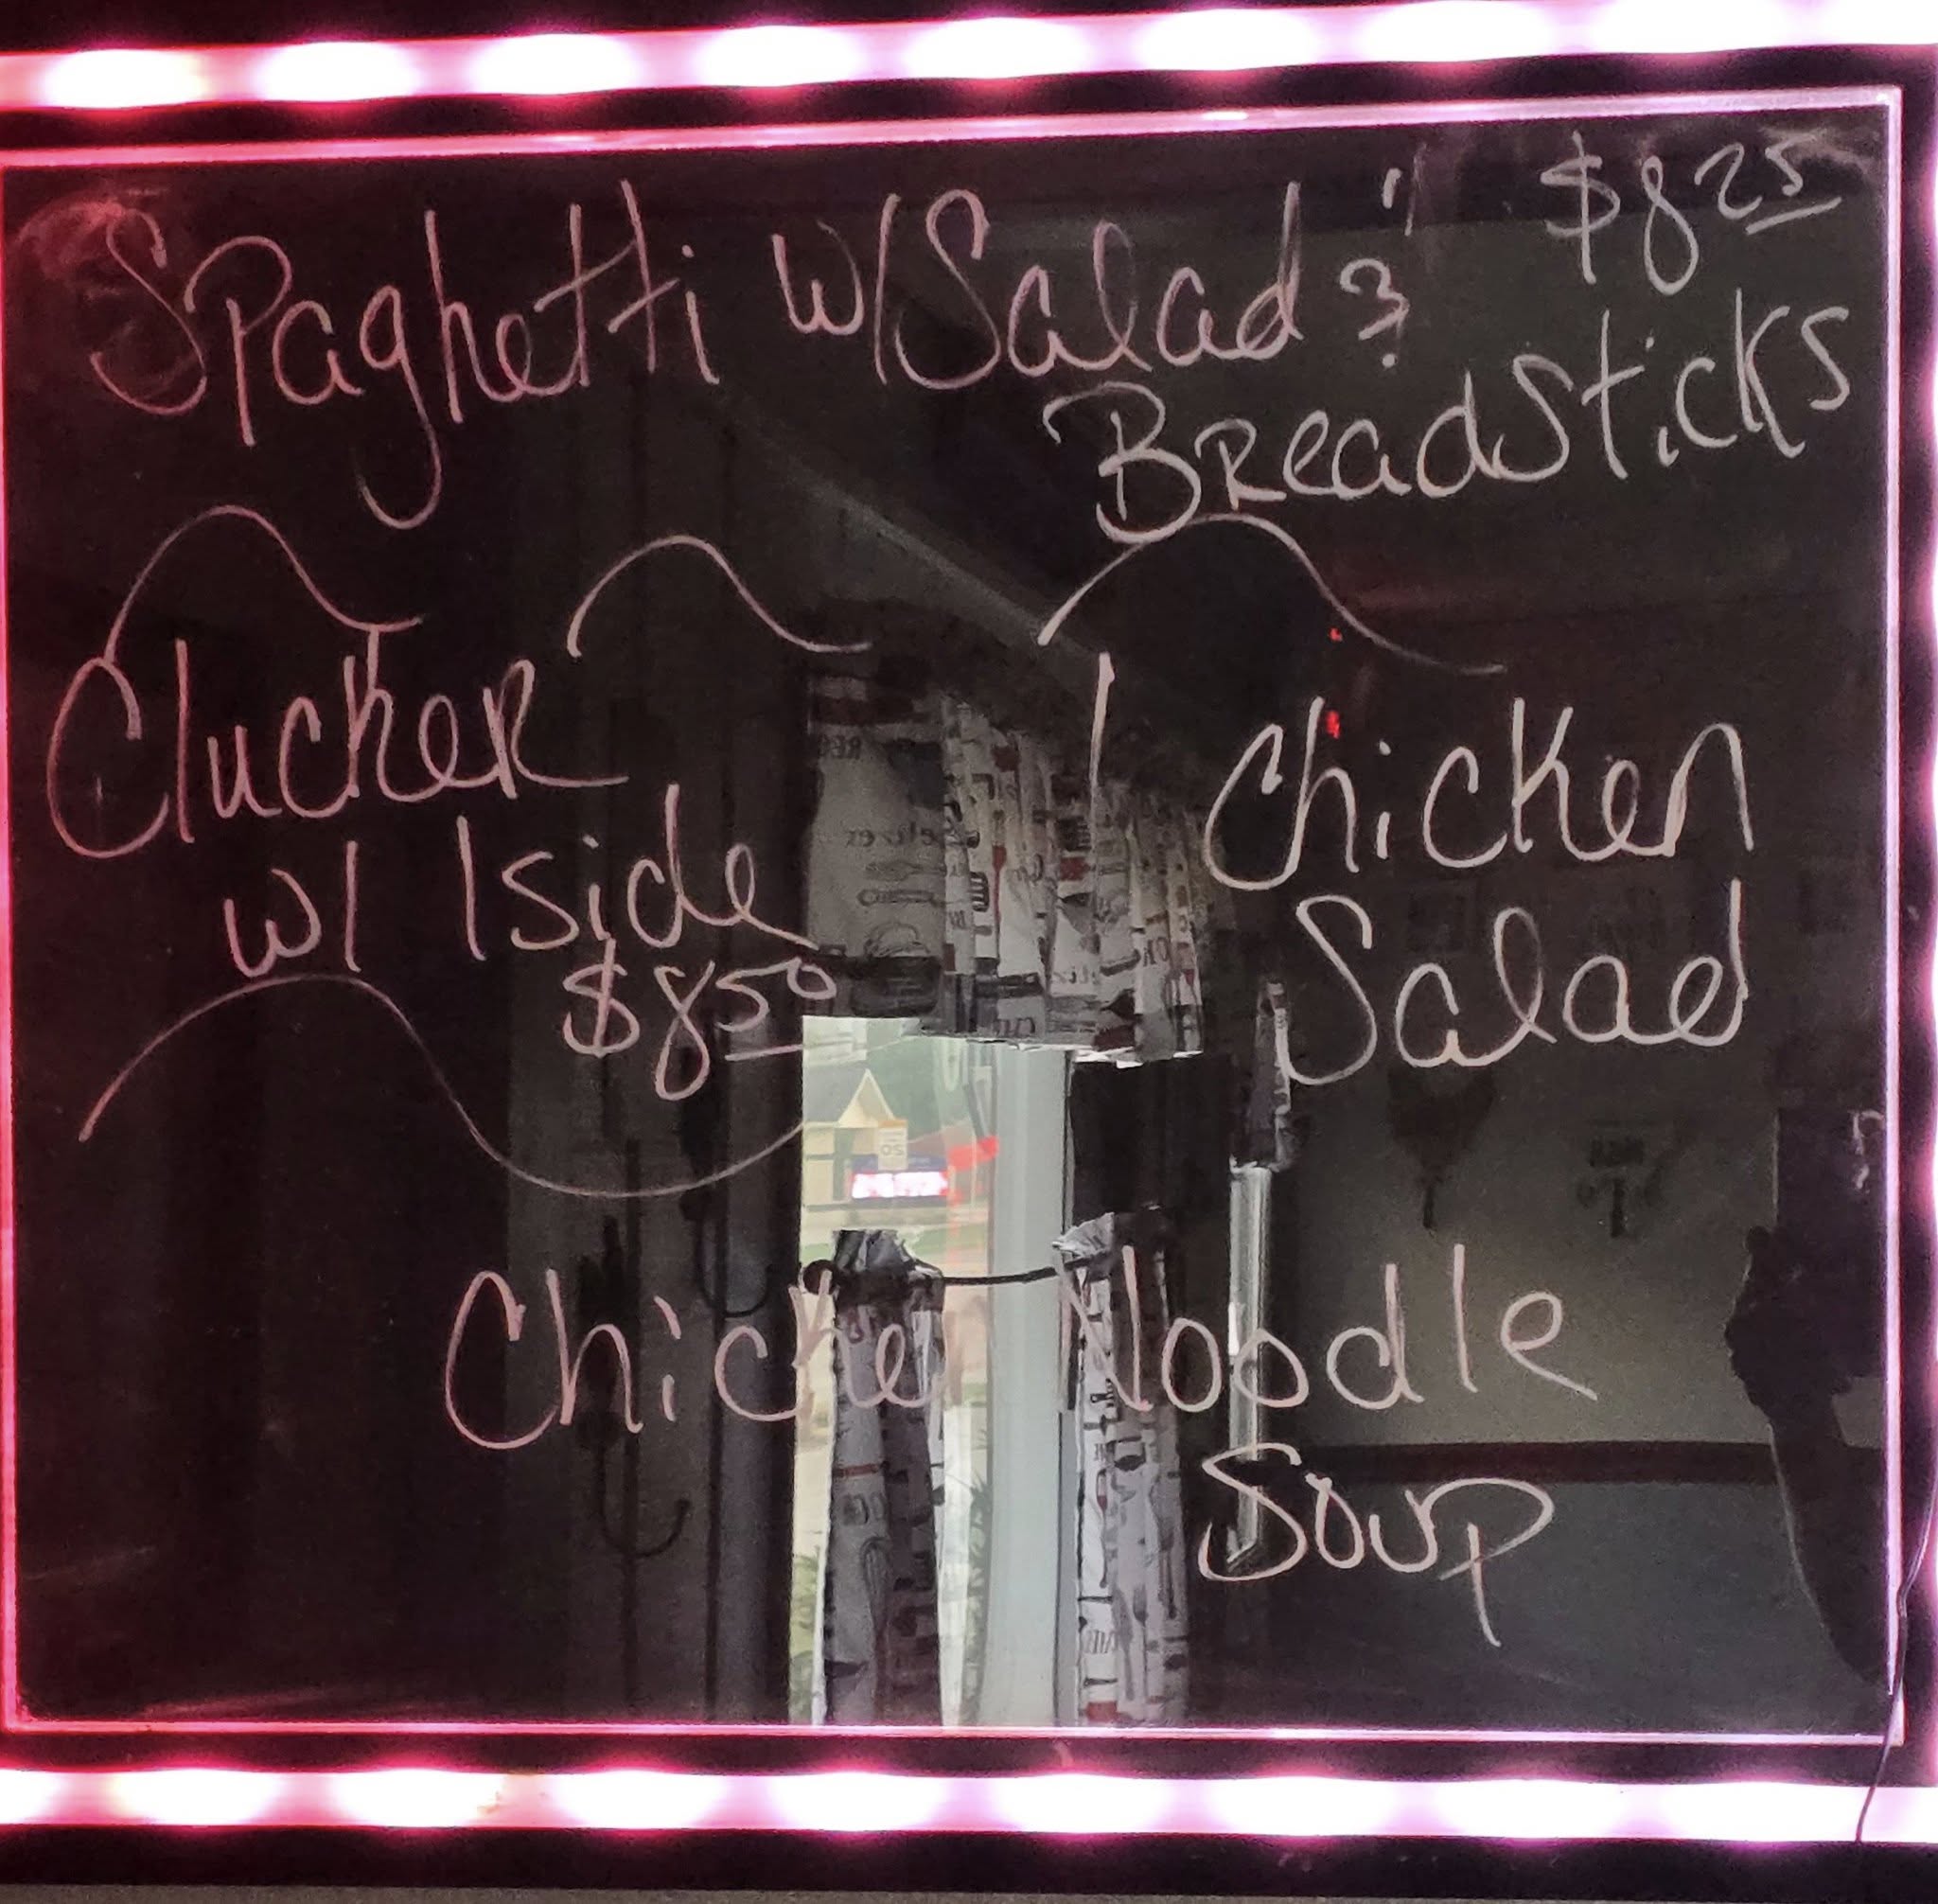 Spaghetti w/ Salad & $8.25
Breadsticks
Clucker
w/ 1 side
$8.50
Chicken
Salad
Chicken Noodle
Soup